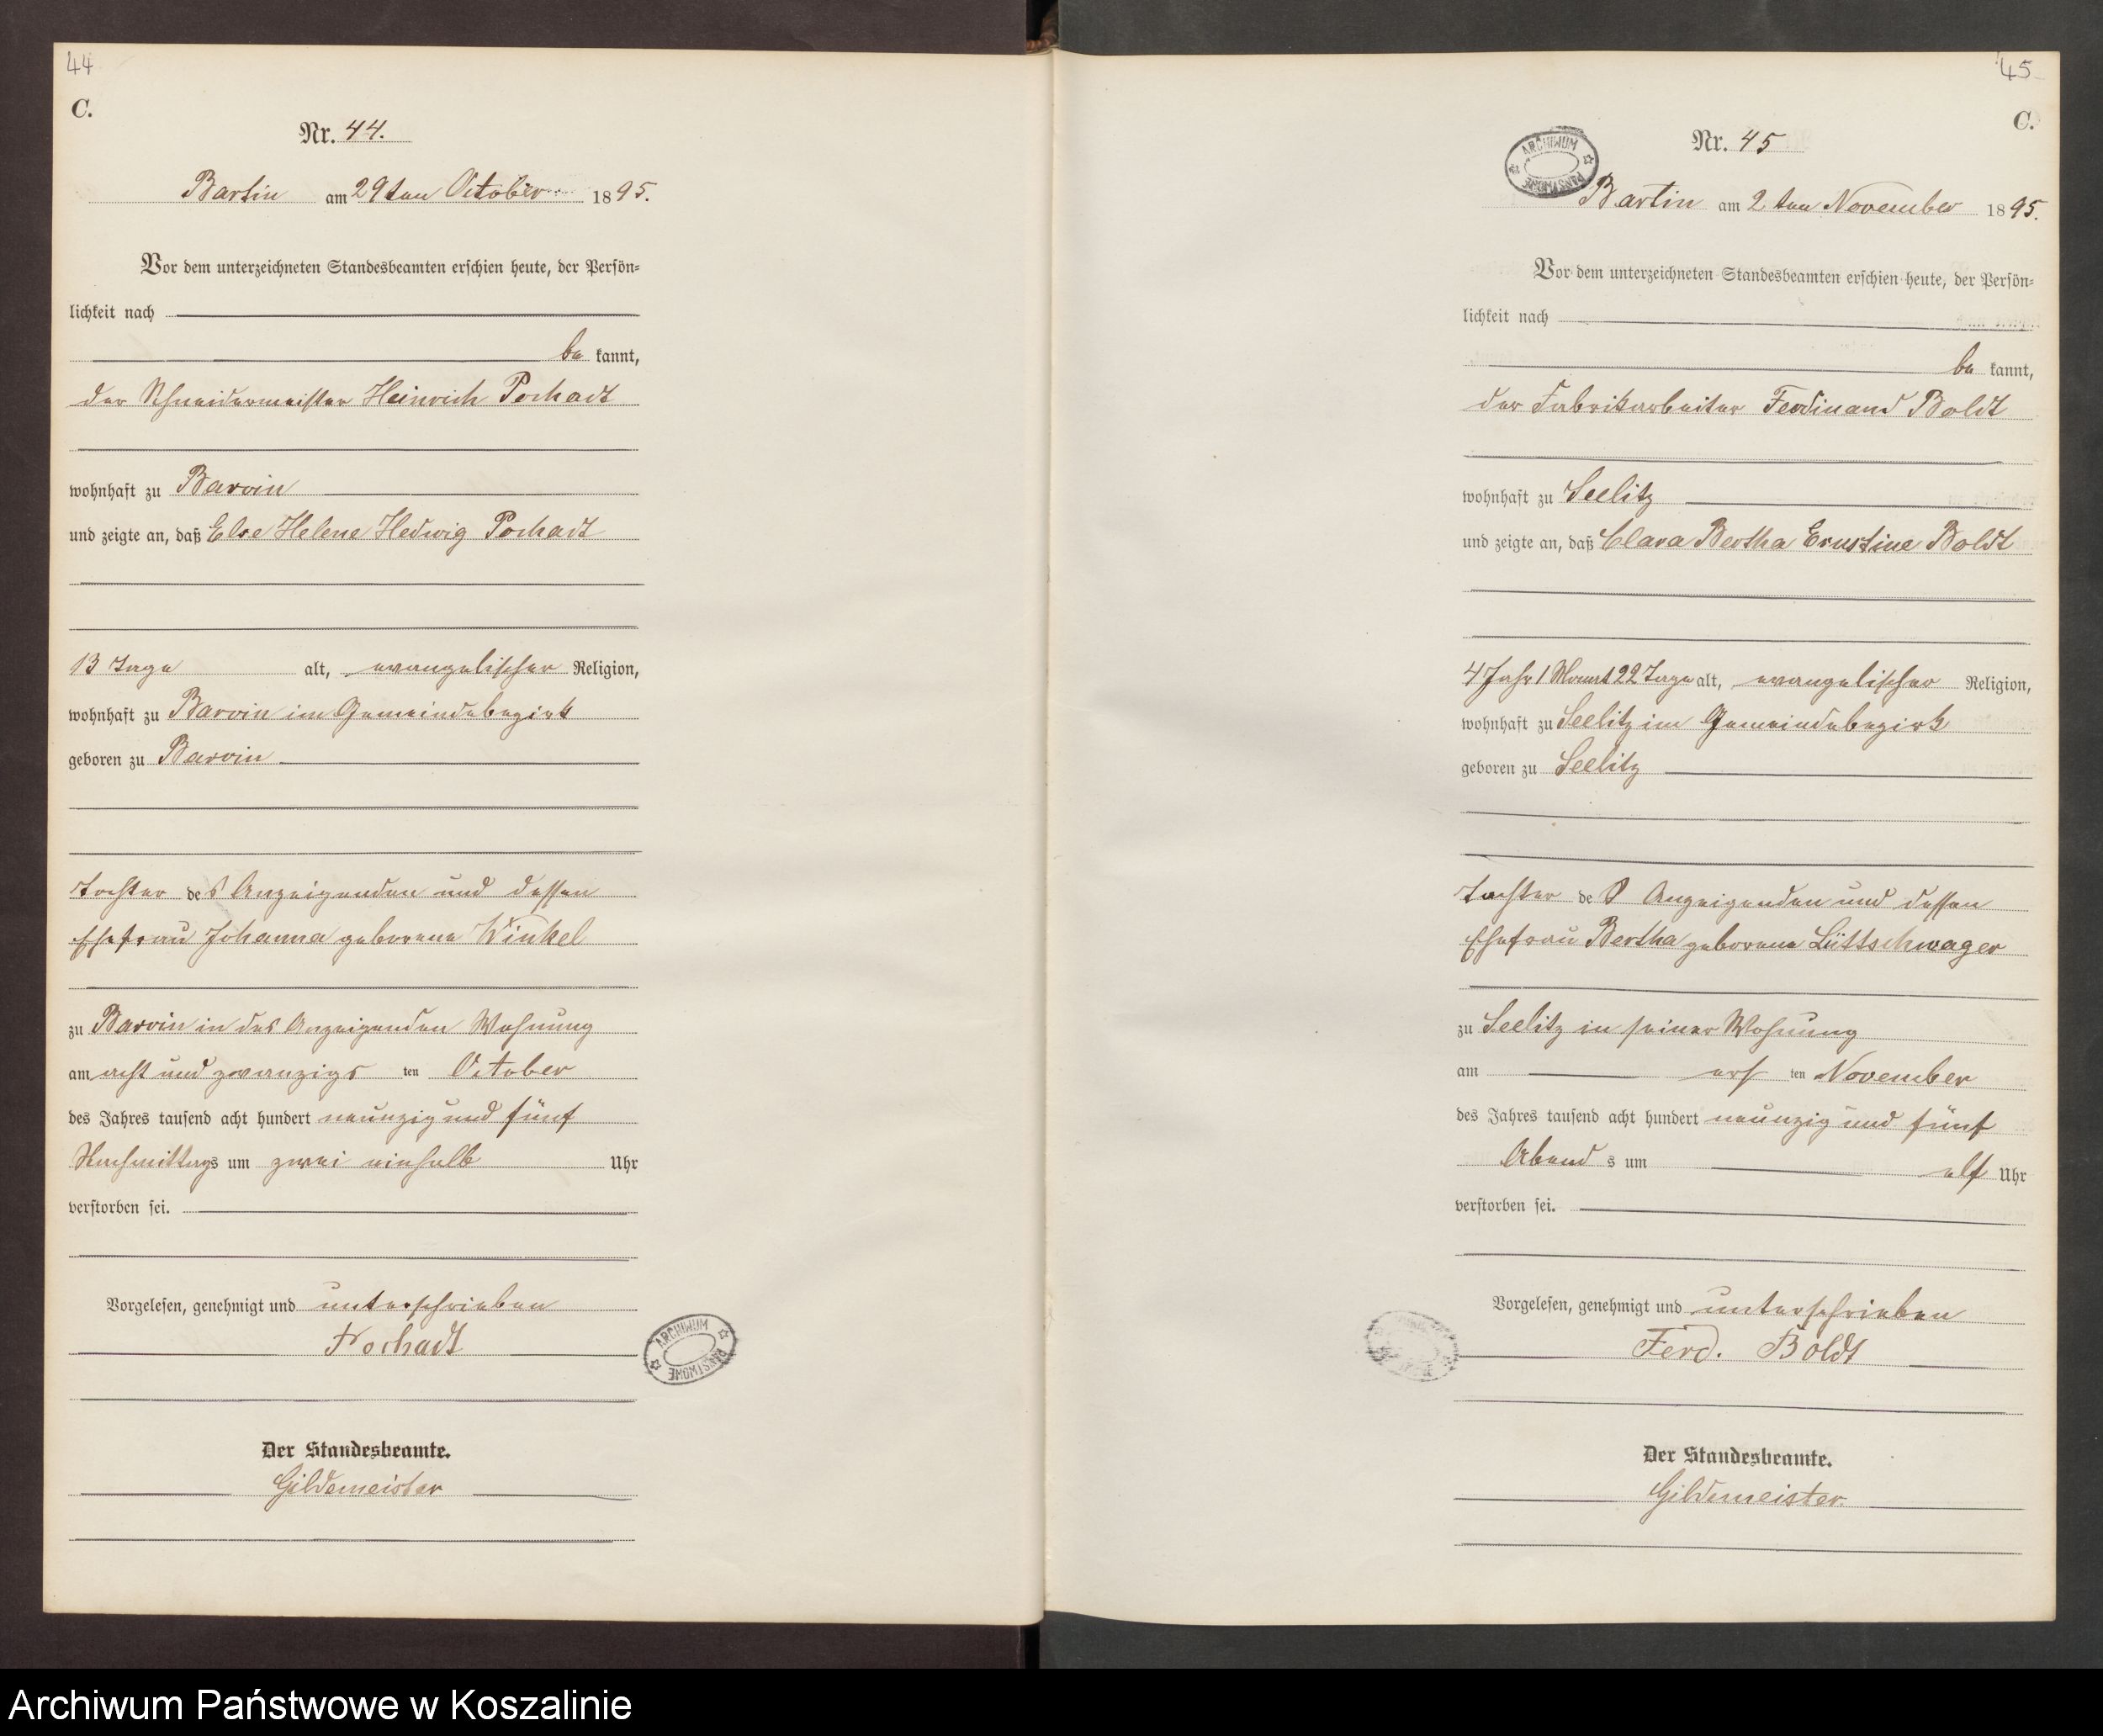 44
C.
Nr. 44.
Bartin am 29ten October 1895.
Vor dem unterzeichneten Standesbeamten erschien heute, der Persön-
lichkeit nach
be kannt,
der Schneidermeister Heinrich Pochadt
wohnhaft zu Barvin
und zeigte an, daß Else Helene Hedwig Pochadt
13 Tage alt, evangelischer Religion,
wohnhaft zu Barvin im Gemeindebezirk
geboren zu Barvin
Tochter des Anzeigenden und dessen
Ehefrau Johanna geborene Winkel
zu Barvin in des Anzeigenden Wohnung
am acht und zwanzigs ten October
des Jahres tausend acht hundert neunzig und fünf
Nachmittags um zwei einhalb Uhr
verstorben sei.
Vorgelesen, genehmigt und unterschrieben
Pochadt
ARCHIWUM PAŃSTWOWE
Der Standesbeamte.
Gildemeister
45
C.
ARCHIWUM PAŃSTWOWE
Nr. 45
Bartin am 2 ten November 1895.
Vor dem unterzeichneten Standesbeamten erschien heute, der Persön-
lichkeit nach
be kannt,
der Fabrikarbeiter Ferdinand Boldt
wohnhaft zu Seelitz
und zeigte an, daß Clara Bertha Ernstine Boldt
4 Jahr 1 Monat 22 Tage alt, evangelischer Religion,
wohnhaft zu Seelitz im Gemeindebezirk
geboren zu Seelitz
Tochter des Anzeigenden und dessen
Ehefrau Bertha geborene Lüttschwager
zu Seelitz in seiner Wohnung
am ers ten November
des Jahres tausend acht hundert neunzig und fünf
Abend s um elf Uhr
verstorben sei.
Vorgelesen, genehmigt und unterschrieben
Ferd. Boldt
Der Standesbeamte.
Gildemeister.
Archiwum Państwowe w Koszalinie